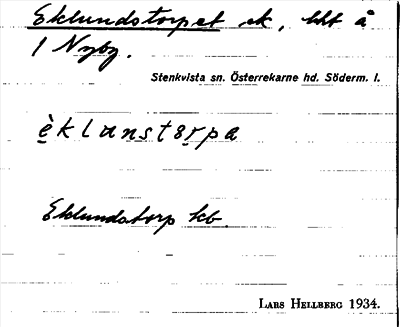 Eklundstorpet ek, bbt å
1 Nyby.
Stenkvista sn. Österrekarne hd. Söderm. l.
èklunstorpa
Eklundstorp kb
LARS HELLBERG 1934.